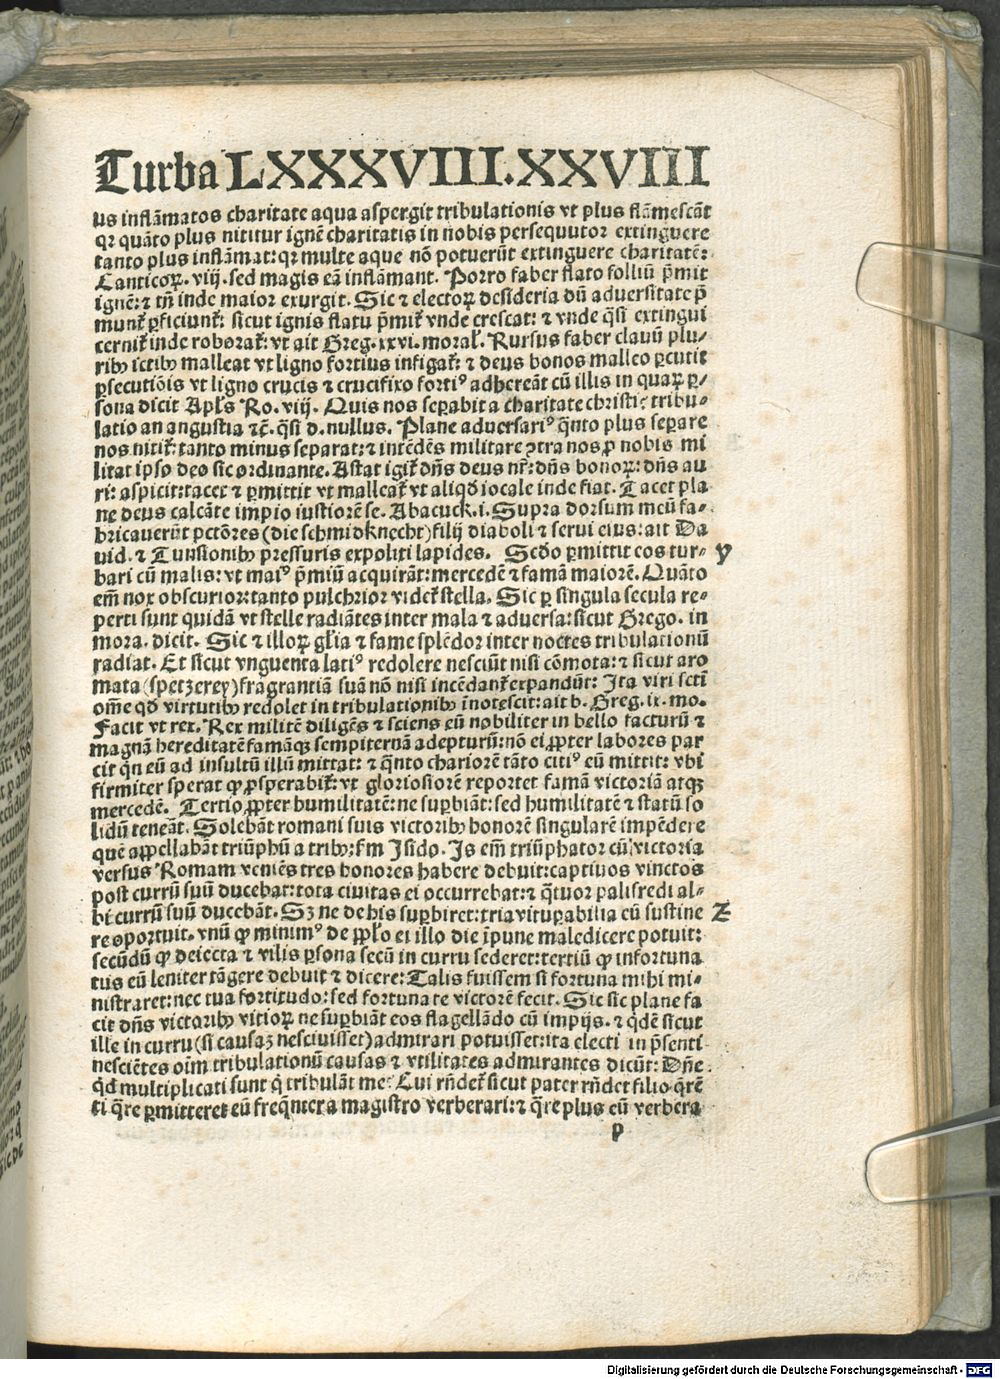 Turba LXXXVIII.XXVIII
us inflāmatos charitate aqua aspergit tribulationis vt plus flāmescāt
qꝛ quāto plus nititur ignē charitatis in nobis persequutor extinguere
tanto plus inflāmat: qꝛ multe aque nō potuerūt extinguere charitatē:
Canticoꝝ. viij. sed magis eā inflāmant. Porro faber flato folliū p̄mit
ignē: ⁊ tn̄ inde maior exurgit. Sic ⁊ electoꝝ desideria dū aduersitate p̄
munt᷑ ꝑficiunt᷑: sicut ignis flatu p̄mit᷑ vnde crescat: ⁊ vnde q̄si extingui
cernit᷑ inde roborat᷑: vt ait Greg. xxvi. moral̓. Rursus faber clauū plu⸗
ribꝰ ictibꝰ malleat vt ligno fortius infigat᷑: ⁊ deus bonos malleo ꝑcutit
ꝑsecutiōis vt ligno crucis ⁊ crucifixo fortiꝰ adhereāt cū illis in quaꝝ ꝑ⸗
sona dicit Apl̓s Ro. viij. Quis nos seꝑabit a charitate christi: tribu⸗
latio an angustia ⁊c̄. q̄si d. nullus. Plane aduersariꝰ q̄nto plus seꝑare
nos nitit᷑: tanto minus separat: ⁊ intēdēs militare ꝯtra nos ꝓ nobis mi
litat ipso deo sic ordinante. Astat igit᷑ dn̄s deus nr̄: dn̄s bonoꝝ: dn̄s au
ri: aspicit: tacet ⁊ ꝑmittit vt malleat᷑ vt aliqđ iocale inde fiat. Tacet pla
ne deus calcāte impio iustiorē se. Abacuck. i. Supra dorsum meū fa⸗
bricauerūt pctōres (die schmidknecht) filij diaboli ⁊ serui eius: ait Da
uid. ⁊ Tunsionibꝰ pressuris expoliti lapides. Scđo ꝑmittit eos tur⸗ y
bari cū malis: vt maiꝰ p̄miū acquirāt: mercedē ⁊ famā maiorē. Quāto
em̄ nox obscurior: tanto pulchrior videt᷑ stella. Sic ꝑ singula secula re⸗
perti sunt quidā vt stelle radiātes inter mala ⁊ aduersa: sicut Grego. in
mora. dicit. Sic ⁊ illoꝝ gl̓ia ⁊ fame splēdor inter noctes tribulationū
radiat. Et sicut vnguenta latiꝰ redolere nesciūt nisi cōmota: ⁊ sicut aro
mata (spetzerey) fragrantiā suā nō nisi incēdant᷑ expandūt: Ita viri scti̅
om̄e qđ virtutibꝰ redolet in tribulationibꝰ īnotescit: ait b. Greg. ix. mo.
Facit vt rex. Rex militē diligēs ⁊ sciens eū nobiliter in bello facturū ⁊
magnā hereditatē famāqꝫ sempiternā adepturū: nō ei ꝓpter labores par
cit qn̄ eū ad insultū illū mittat: ⁊ q̄nto chariorē tāto citiꝰ eū mittit: vbi
firmiter sperat ꝙ ꝓsperabit᷑: vt gloriosiorē reportet famā victoriā atqꝫ
mercedē. Tertio ꝓpter humilitatē: ne suꝑbiāt: sed humilitatē ⁊ statū so
lidū teneāt. Solebāt romani suis victoribꝰ honorē singularē impēdere
quē appellabāt triūphū a tribꝰ; ẜm Isido. Is em̄ triūphator cū victoria
versus Romam veniēs tres honores habere debuit: captiuos vinctos
post currū suū ducebat: tota ciuitas ei occurrebat: ⁊ q̄tuor palifredi al⸗
bi currū suū ducebāt. Sꝫ ne de his suꝑbiret: tria vituꝑabilia eū sustine Z
re oportuit. vnū ꝙ minimꝰ de ppl̓o ei illo die īpune maledicere potuit:
secūdū ꝙ deiecta ⁊ vilis ꝑsona secū in curru sederet: tertiū ꝙ infortuna
tus eū leniter tāgere debuit ⁊ dicere: Talis fuissem si fortuna mihi mi⸗
nistraret: nec tua fortitudo: sed fortuna te victorē fecit. Sic sic plane fa
cit dn̄s victoribꝰ vitioꝝ ne suꝑbiāt eos flagellādo cū impijs. ⁊ q̄dē sicut
ille in curru (si causaꝫ nesciuisset) admirari potuisset: ita electi in p̄senti
nesciētes oīm tribulationū causas ⁊ vtilitates admirantes dicūt: Dn̄e
q̇d multiplicati sunt q̇ tribulāt me: Cui rn̄det᷑ sicut pater rn̄det filio q̄rē
ti q̄re ꝑmitteret eū freq̄nter a magistro verberari: ⁊ q̄re plus eū verbera
p
Digitalisierung gefördert durch die Deutsche Forschungsgemeinschaft - DFG